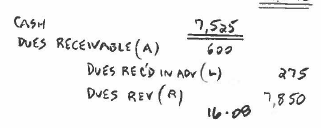 CASH 7,525
DUES RECEIVABLE (A) 600
DUES REC'D IN ADV (L) 275
DUES REV (R) 7,850
16.08